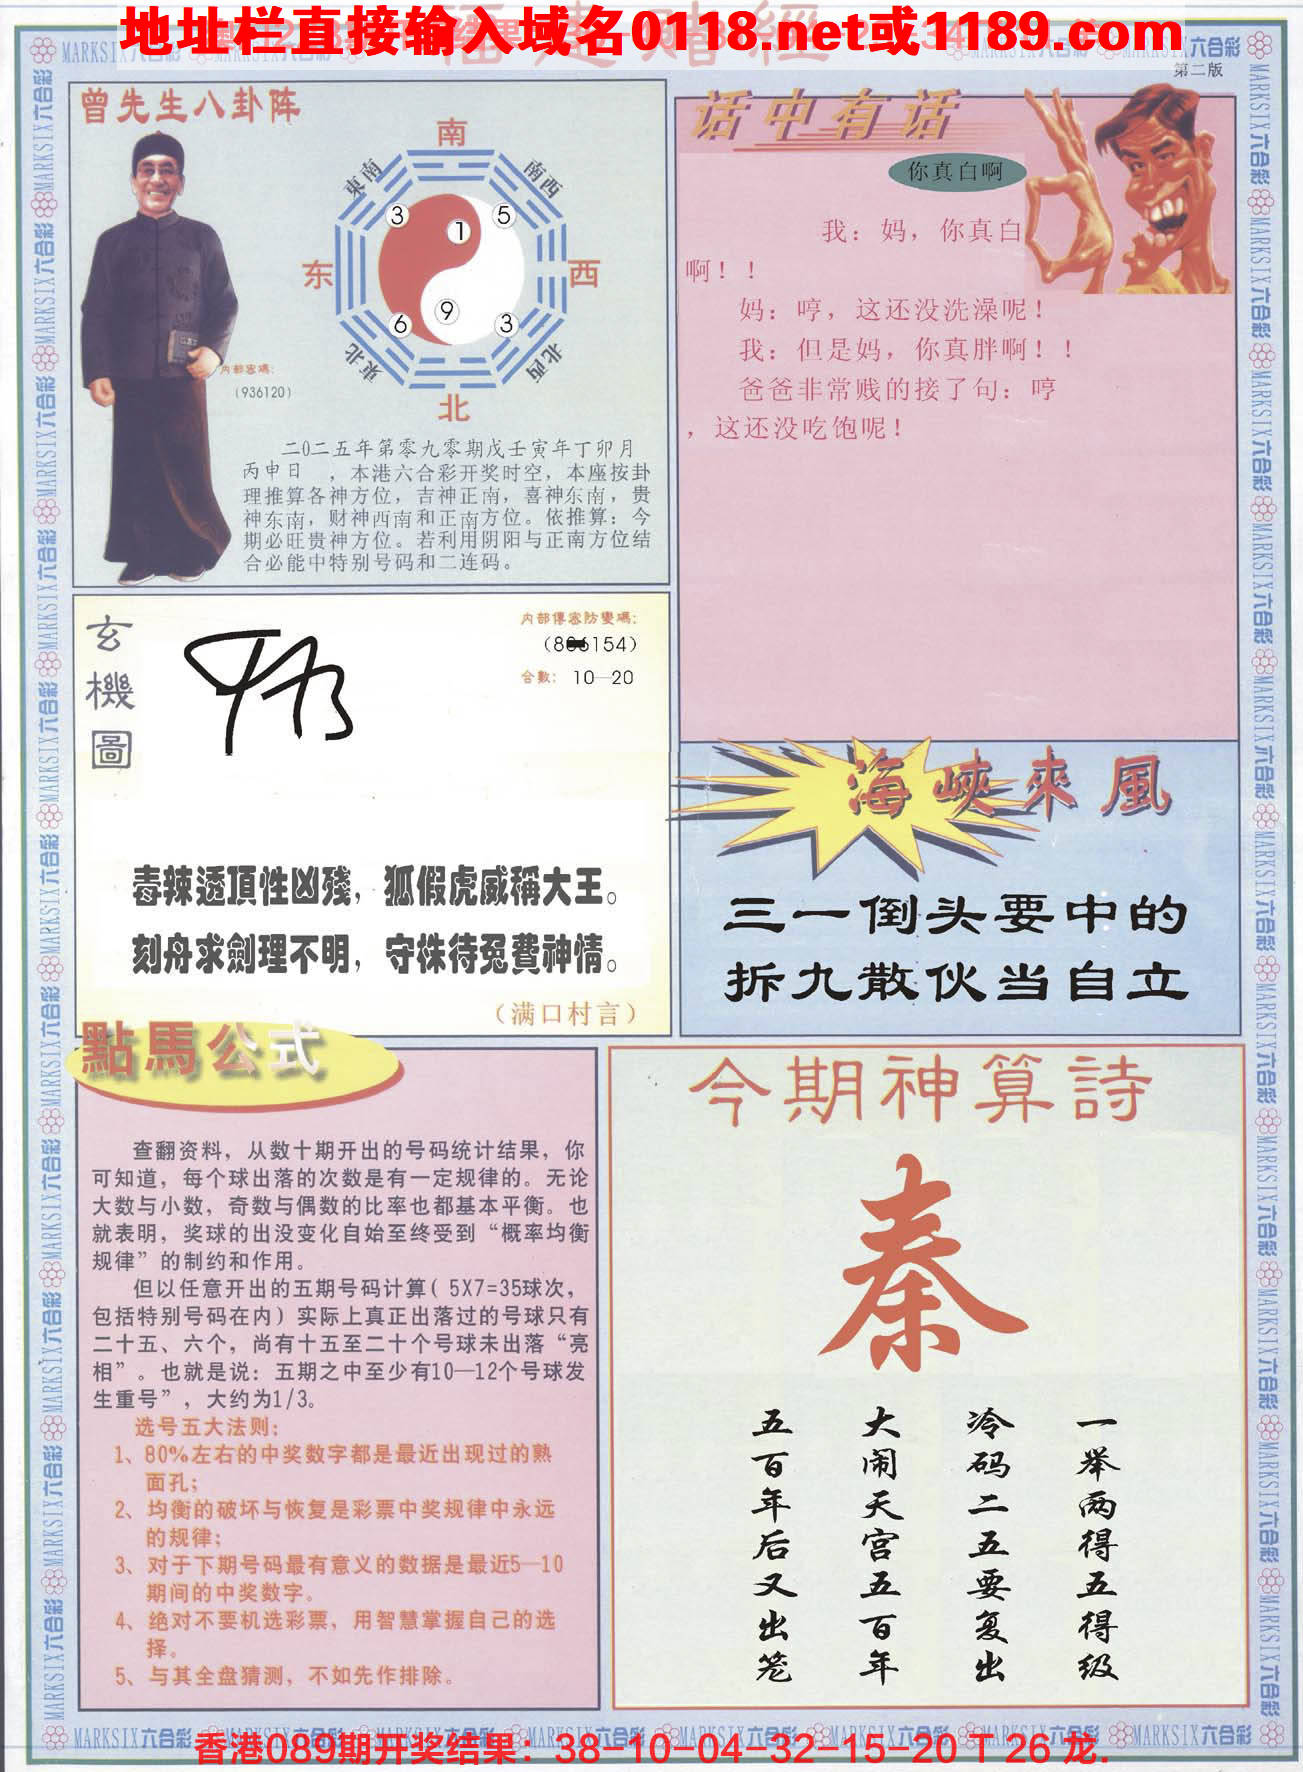 地址栏直接输入域名0118.net或1189.com
第二版
曾先生八卦阵
南
東南
南西
3
5
1
东
西
9
6
3
東北
北西
北
内部密碼:
(936120)
二0二五年第零九零期戊壬寅年丁卯月
丙申日 ，本港六合彩开奖时空，本座按卦
理推算各神方位，吉神正南，喜神东南，贵
神东南，财神西南和正南方位。依推算：今
期必旺贵神方位。若利用阴阳与正南方位结
合必能中特别号码和二连码。
话中有话
你真白啊
我：妈，你真白
啊！！
妈：哼，这还没洗澡呢！
我：但是妈，你真胖啊！！
爸爸非常贱的接了句：哼
，这还没吃饱呢！
玄機圖
内部傳密防變碼:
合數： 10—20
毒辣透頂性凶殘，狐假虎威稱大王。
刻舟求劍理不明，守株待兔費神情。
（满口村言）
海峽來風
三一倒头要中的
拆九散伙当自立
點馬公式
查翻资料，从数十期开出的号码统计结果，你
可知道，每个球出落的次数是有一定规律的。无论
大数与小数，奇数与偶数的比率也都基本平衡。也
就表明，奖球的出没变化自始至终受到“概率均衡
规律”的制约和作用。
但以任意开出的五期号码计算( 5X7=35球次，
包括特别号码在内）实际上真正出落过的号球只有
二十五、六个，尚有十五至二十个号球未出落“亮
相”。也就是说：五期之中至少有10—12个号球发
生重号”，大约为1/3。
选号五大法则：
1、80%左右的中奖数字都是最近出现过的熟
面孔；
2、均衡的破坏与恢复是彩票中奖规律中永远
的规律；
3、对于下期号码最有意义的数据是最近5—10
期间的中奖数字。
4、绝对不要机选彩票，用智慧掌握自己的选
择。
5、与其全盘猜测，不如先作排除。
今期神算詩
秦
一举两得五得级
冷码二五要复出
大闹天宫五百年
五百年后又出笼
香港089期开奖结果：38-10-04-32-15-20 T 26 龙.